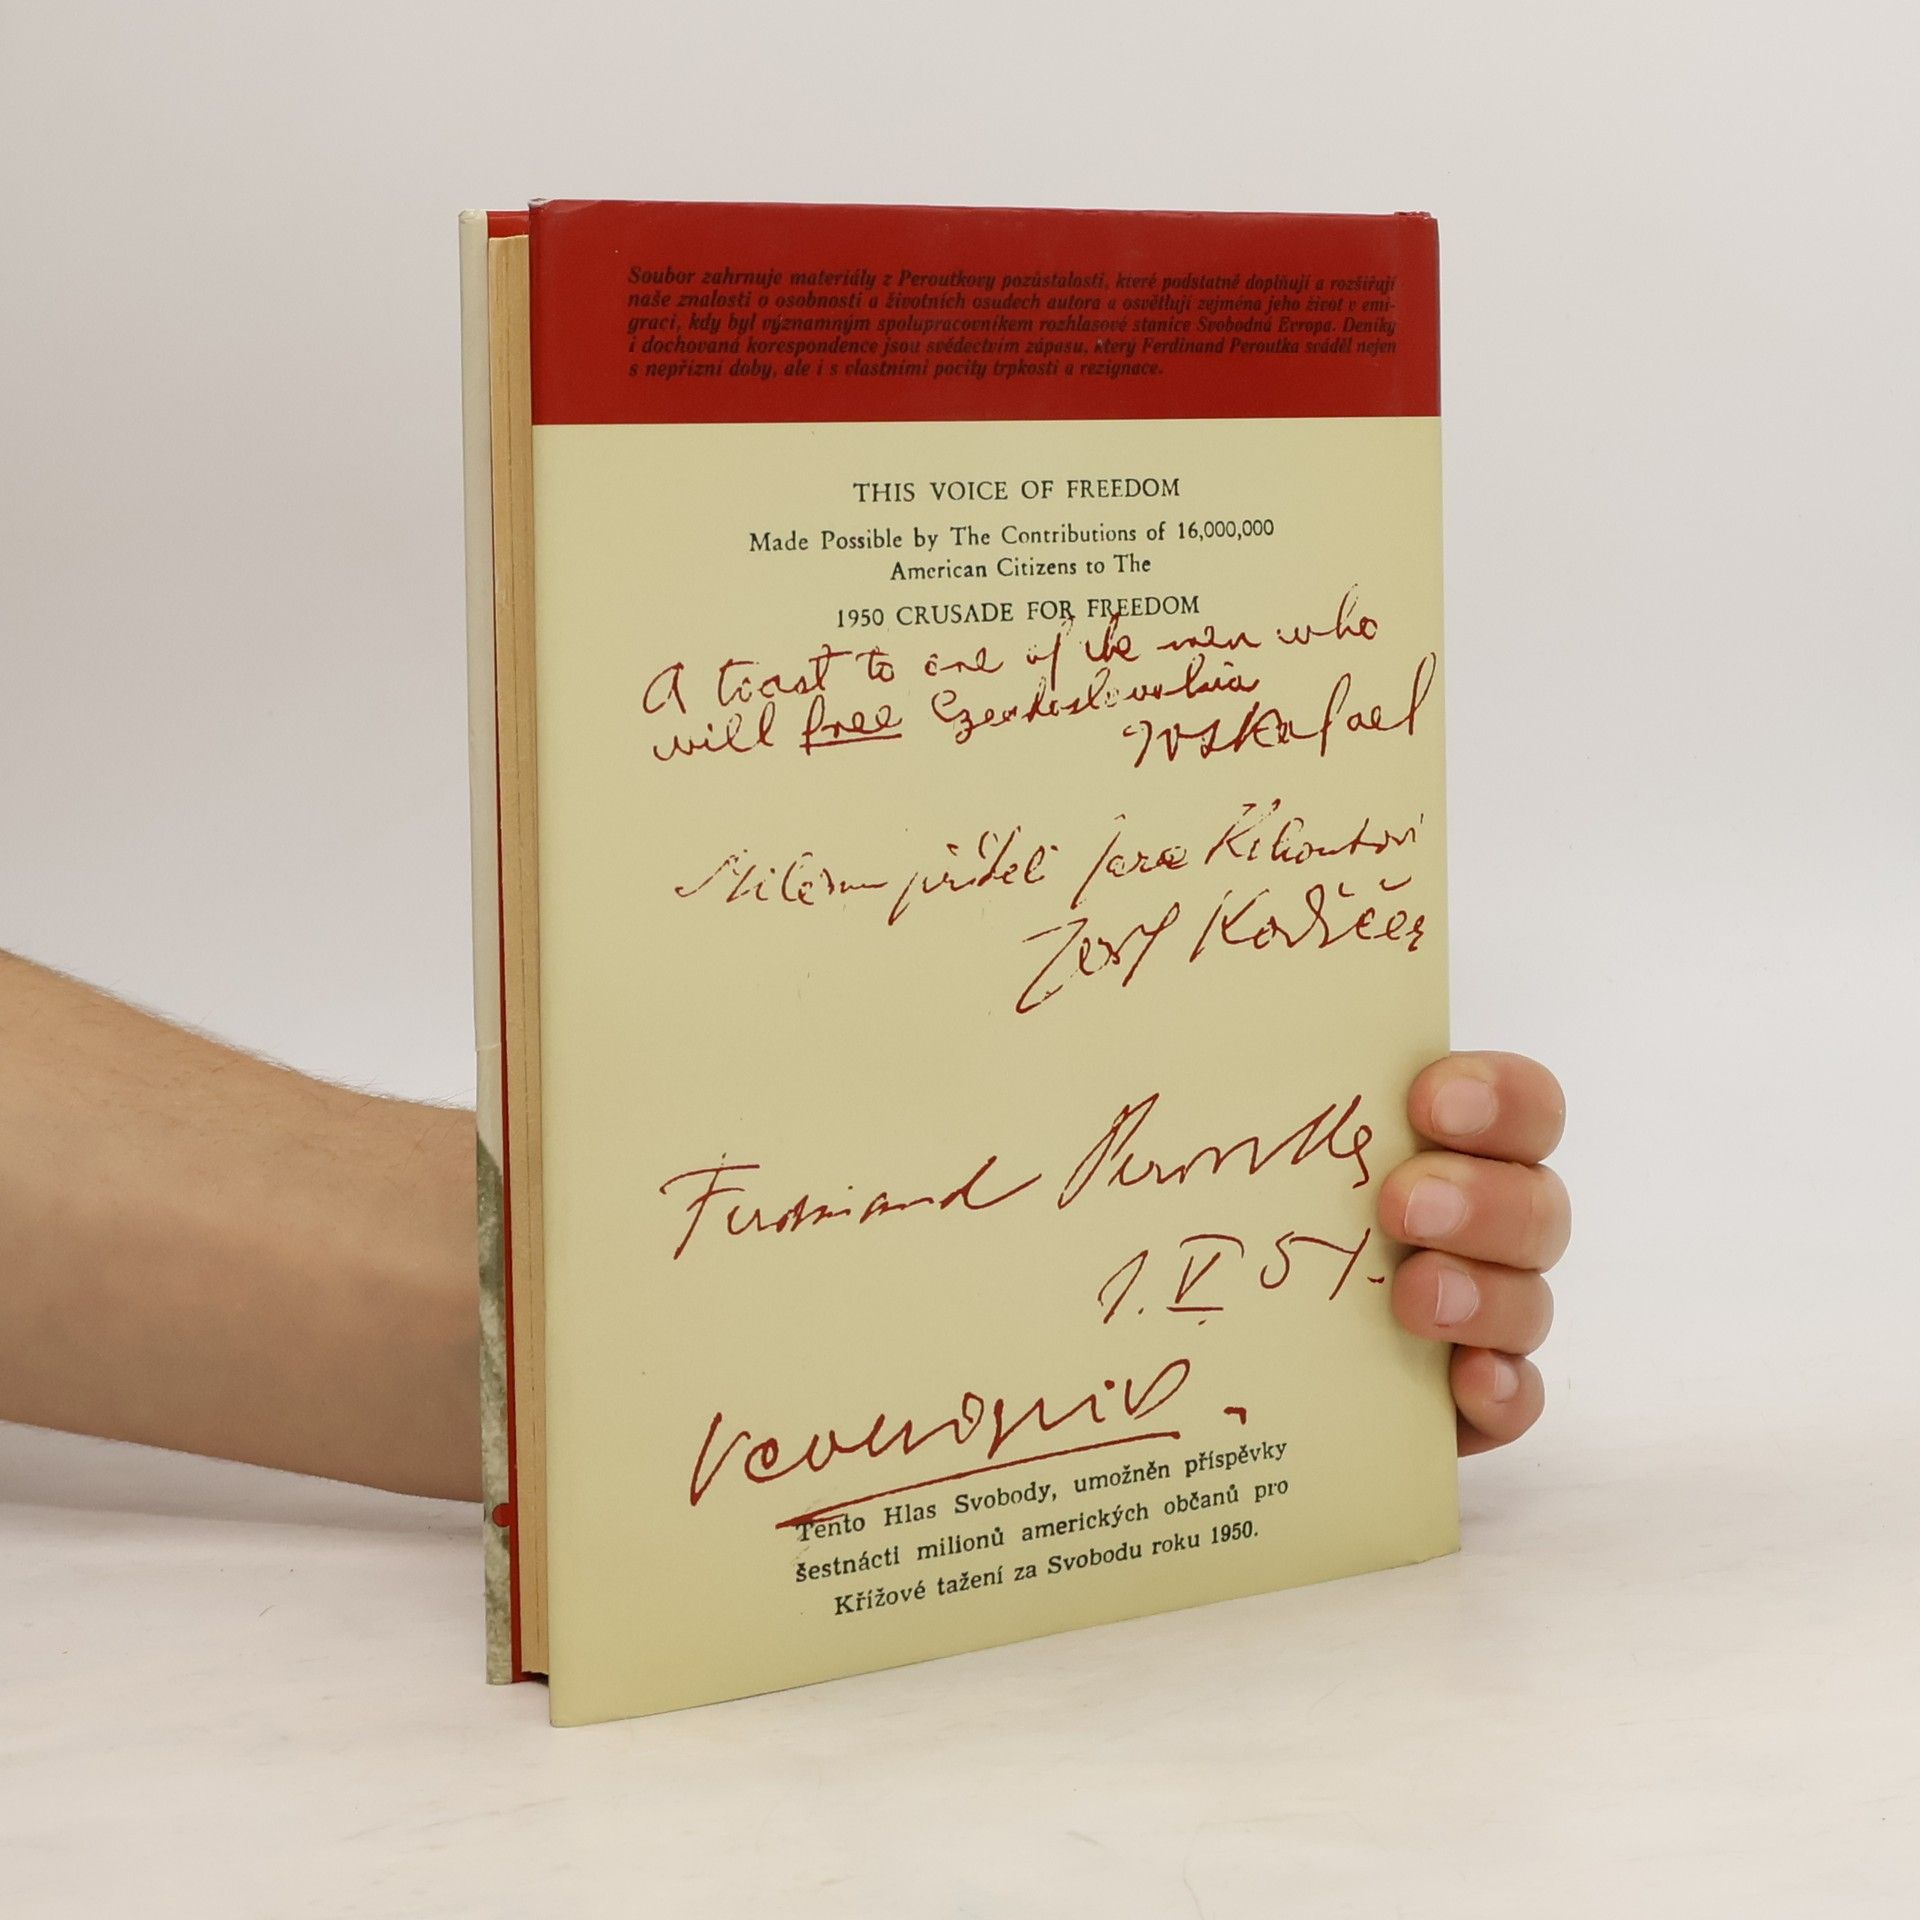 Soubor zahrnuje materiály z Peroutkovy pozůstalosti, které podstatně doplňují a rozšiřují
naše znalosti o osobnosti a životních osudech autora a osvětlují zejména jeho život v emi-
graci, kdy byl významným spolupracovníkem rozhlasové stanice Svobodná Evropa. Deníky
i dochovaná korespondence jsou svědectvím zápasu, který Ferdinand Peroutka sváděl nejen
s nepřízní doby, ale i s vlastními pocity trpkosti a rezignace.
THIS VOICE OF FREEDOM
Made Possible by The Contributions of 16,000,000
American Citizens to The
1950 CRUSADE FOR FREEDOM
A toast to one of the men who
will free Czechoslovakia
Milému příteli
Josef Kodíček
Ferdinand Peroutka
1. V 51.
Tento Hlas Svobody, umožněn příspěvky
šestnácti milionů amerických občanů pro
Křížové tažení za Svobodu roku 1950.